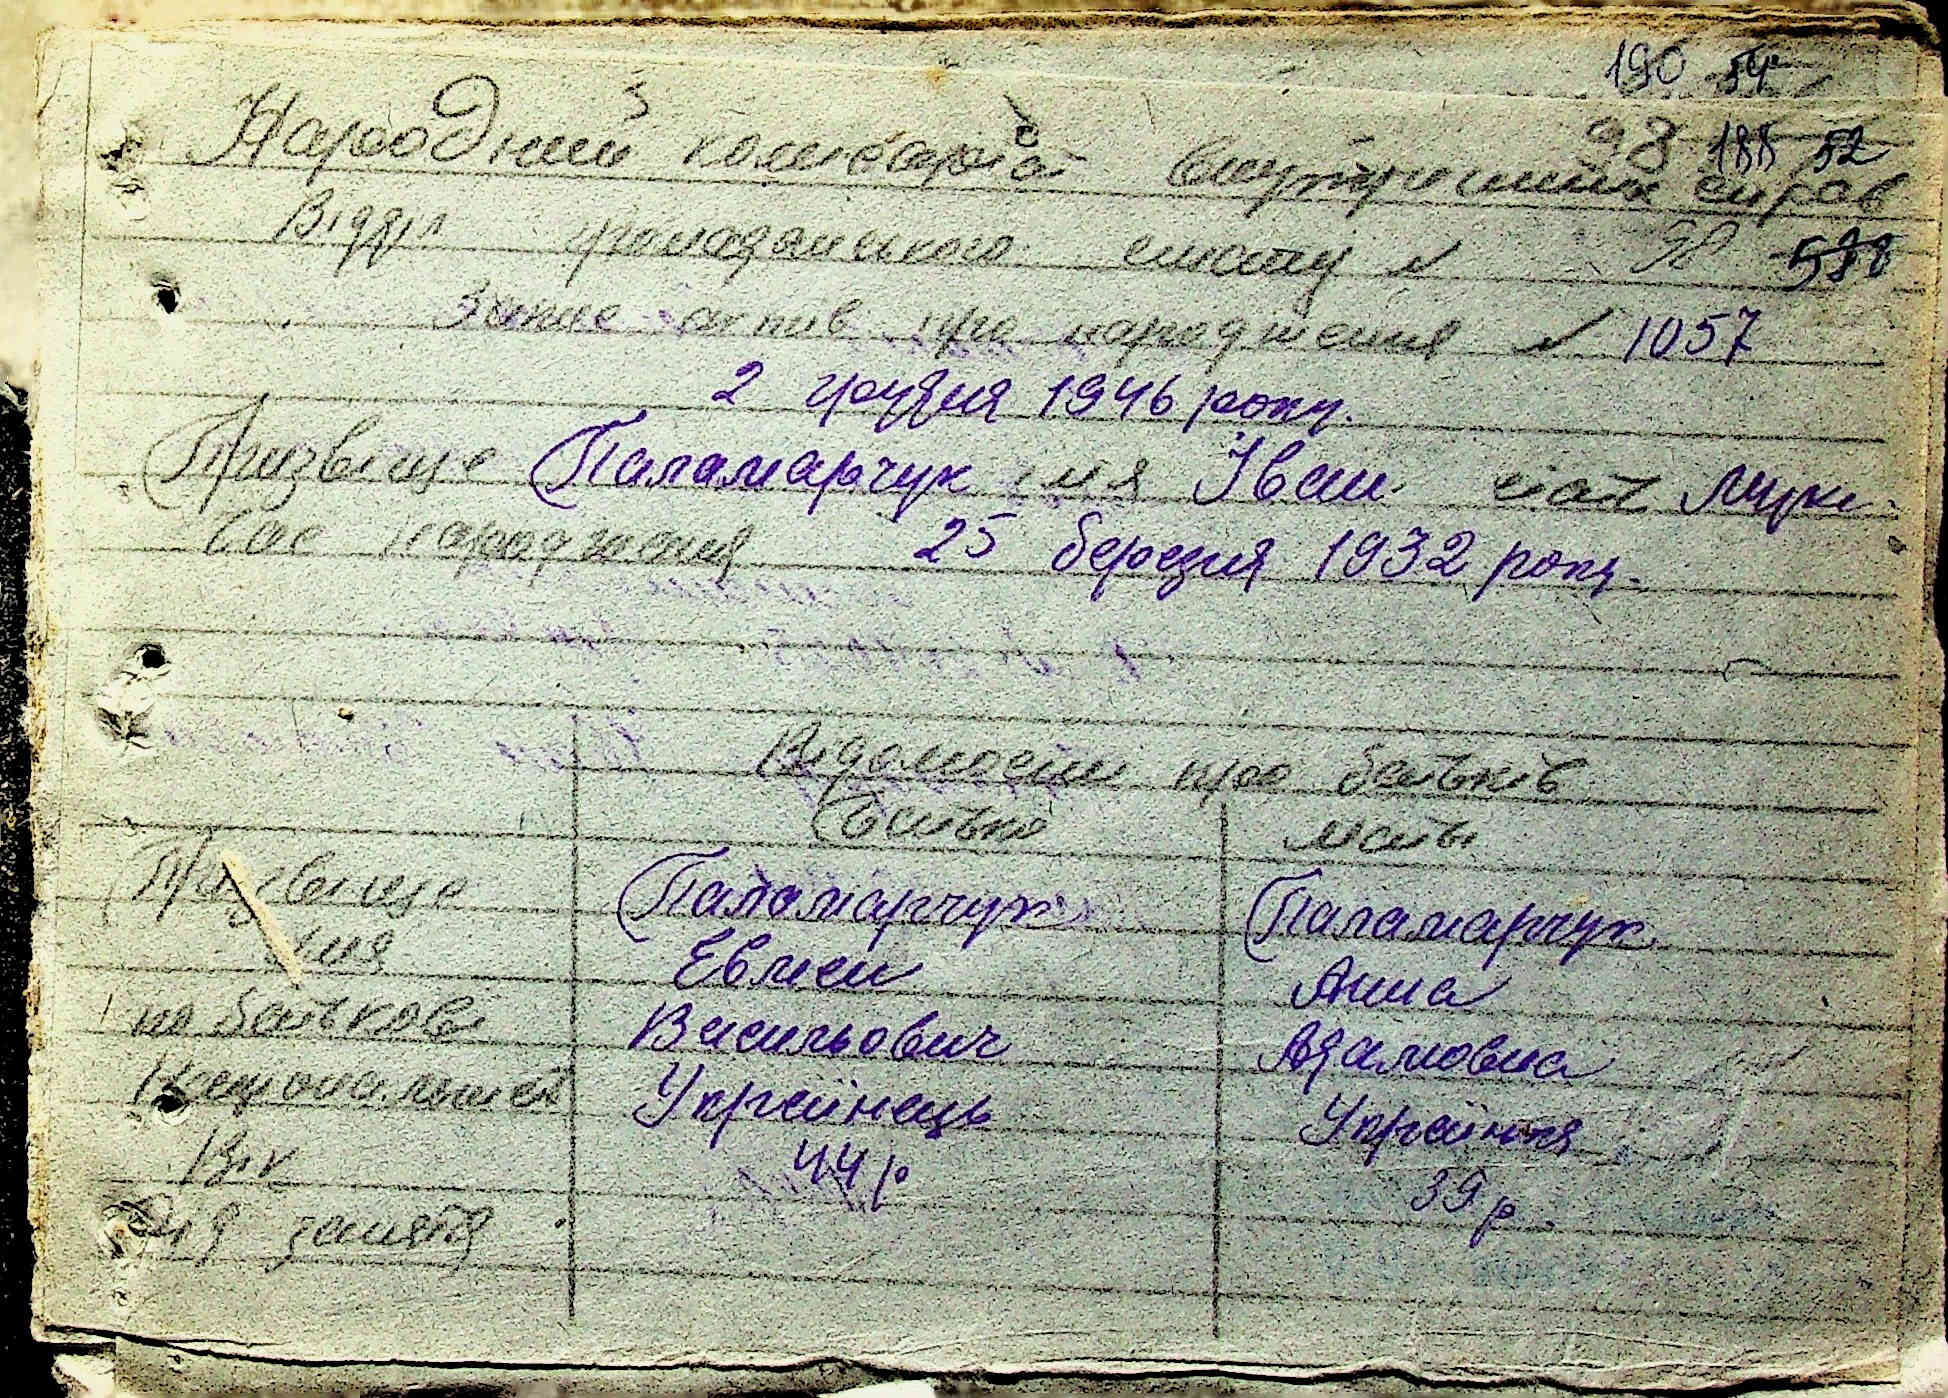 190 54
98 188 52
Народний комісаріат внутрішніх справ
Відділ громадянського стату № 588
Запис актив про народження № 1057
2 грудня 1946 року.
Призвище Паламарчук імя Іван стать мужс.
Час народження 25 березня 1932 року.
Відомости про батьків
батько мать
Призвище Паламарчук Паламарчук
імя Евмен Анна
по батькове Васильович Адамовна
Национальність Українець Українка
Вік 44 р 39 р.
Для заняття